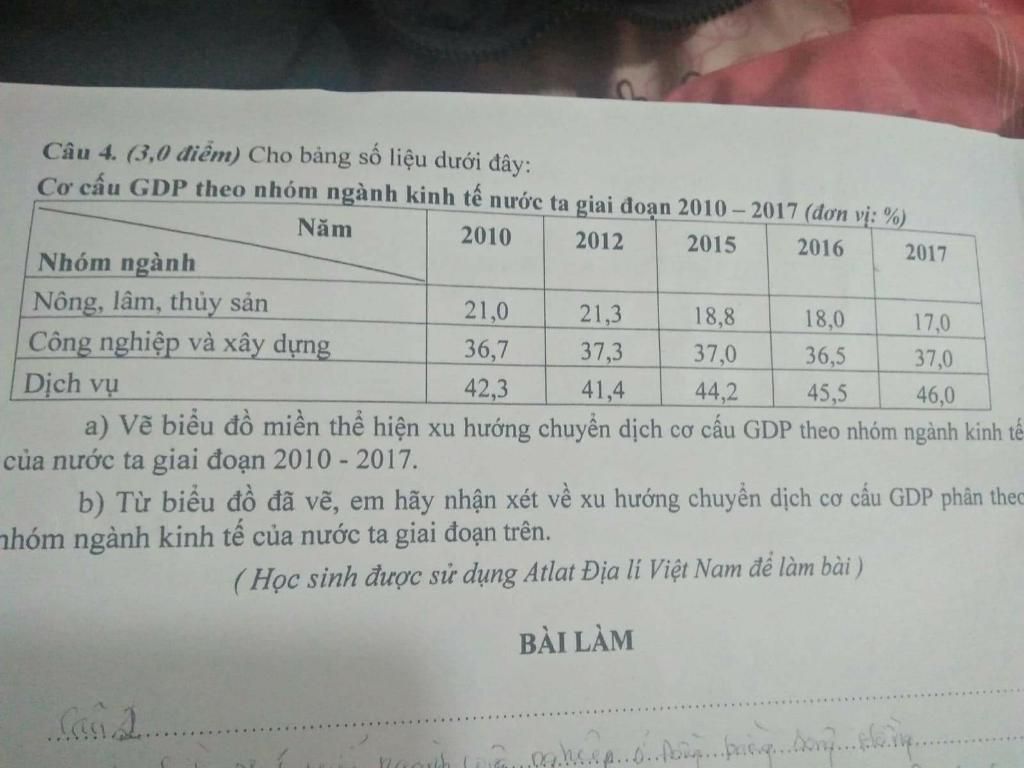 Câu 4. (3,0 điểm) Cho bảng số liệu dưới đây:
Cơ cấu GDP theo nhóm ngành kinh tế nước ta giai đoạn 2010 – 2017 (đơn vị: %)
Năm 2010 2012 2015 2016 2017
Nhóm ngành
Nông, lâm, thủy sản 21,0 21,3 18,8 18,0 17,0
Công nghiệp và xây dựng 36,7 37,3 37,0 36,5 37,0
Dịch vụ 42,3 41,4 44,2 45,5 46,0
a) Vẽ biểu đồ miền thể hiện xu hướng chuyển dịch cơ cấu GDP theo nhóm ngành kinh tế
của nước ta giai đoạn 2010 - 2017.
b) Từ biểu đồ đã vẽ, em hãy nhận xét về xu hướng chuyển dịch cơ cấu GDP phân theo
nhóm ngành kinh tế của nước ta giai đoạn trên.
( Học sinh được sử dụng Atlat Địa lí Việt Nam để làm bài )
BÀI LÀM
Câu 1